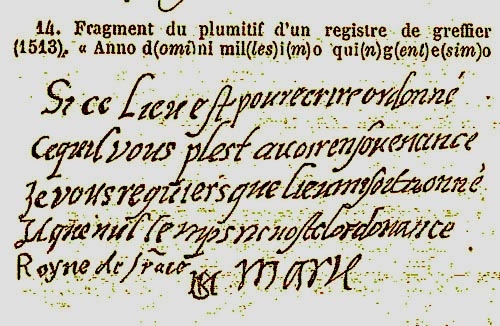 14. Fragment du plumitif d'un registre de greffier
(1513). « Anno d(omi)ni mil(les)i(m)o qui(n)g(ent)e(sim)o
Si ce Lieu est pour ecrire ordonné
Ce quil vous plest avoir en souvenance
Je vous requiers que lieu m soit donné
Et que nul temps n oste l ordonance
Royne de france
Marie